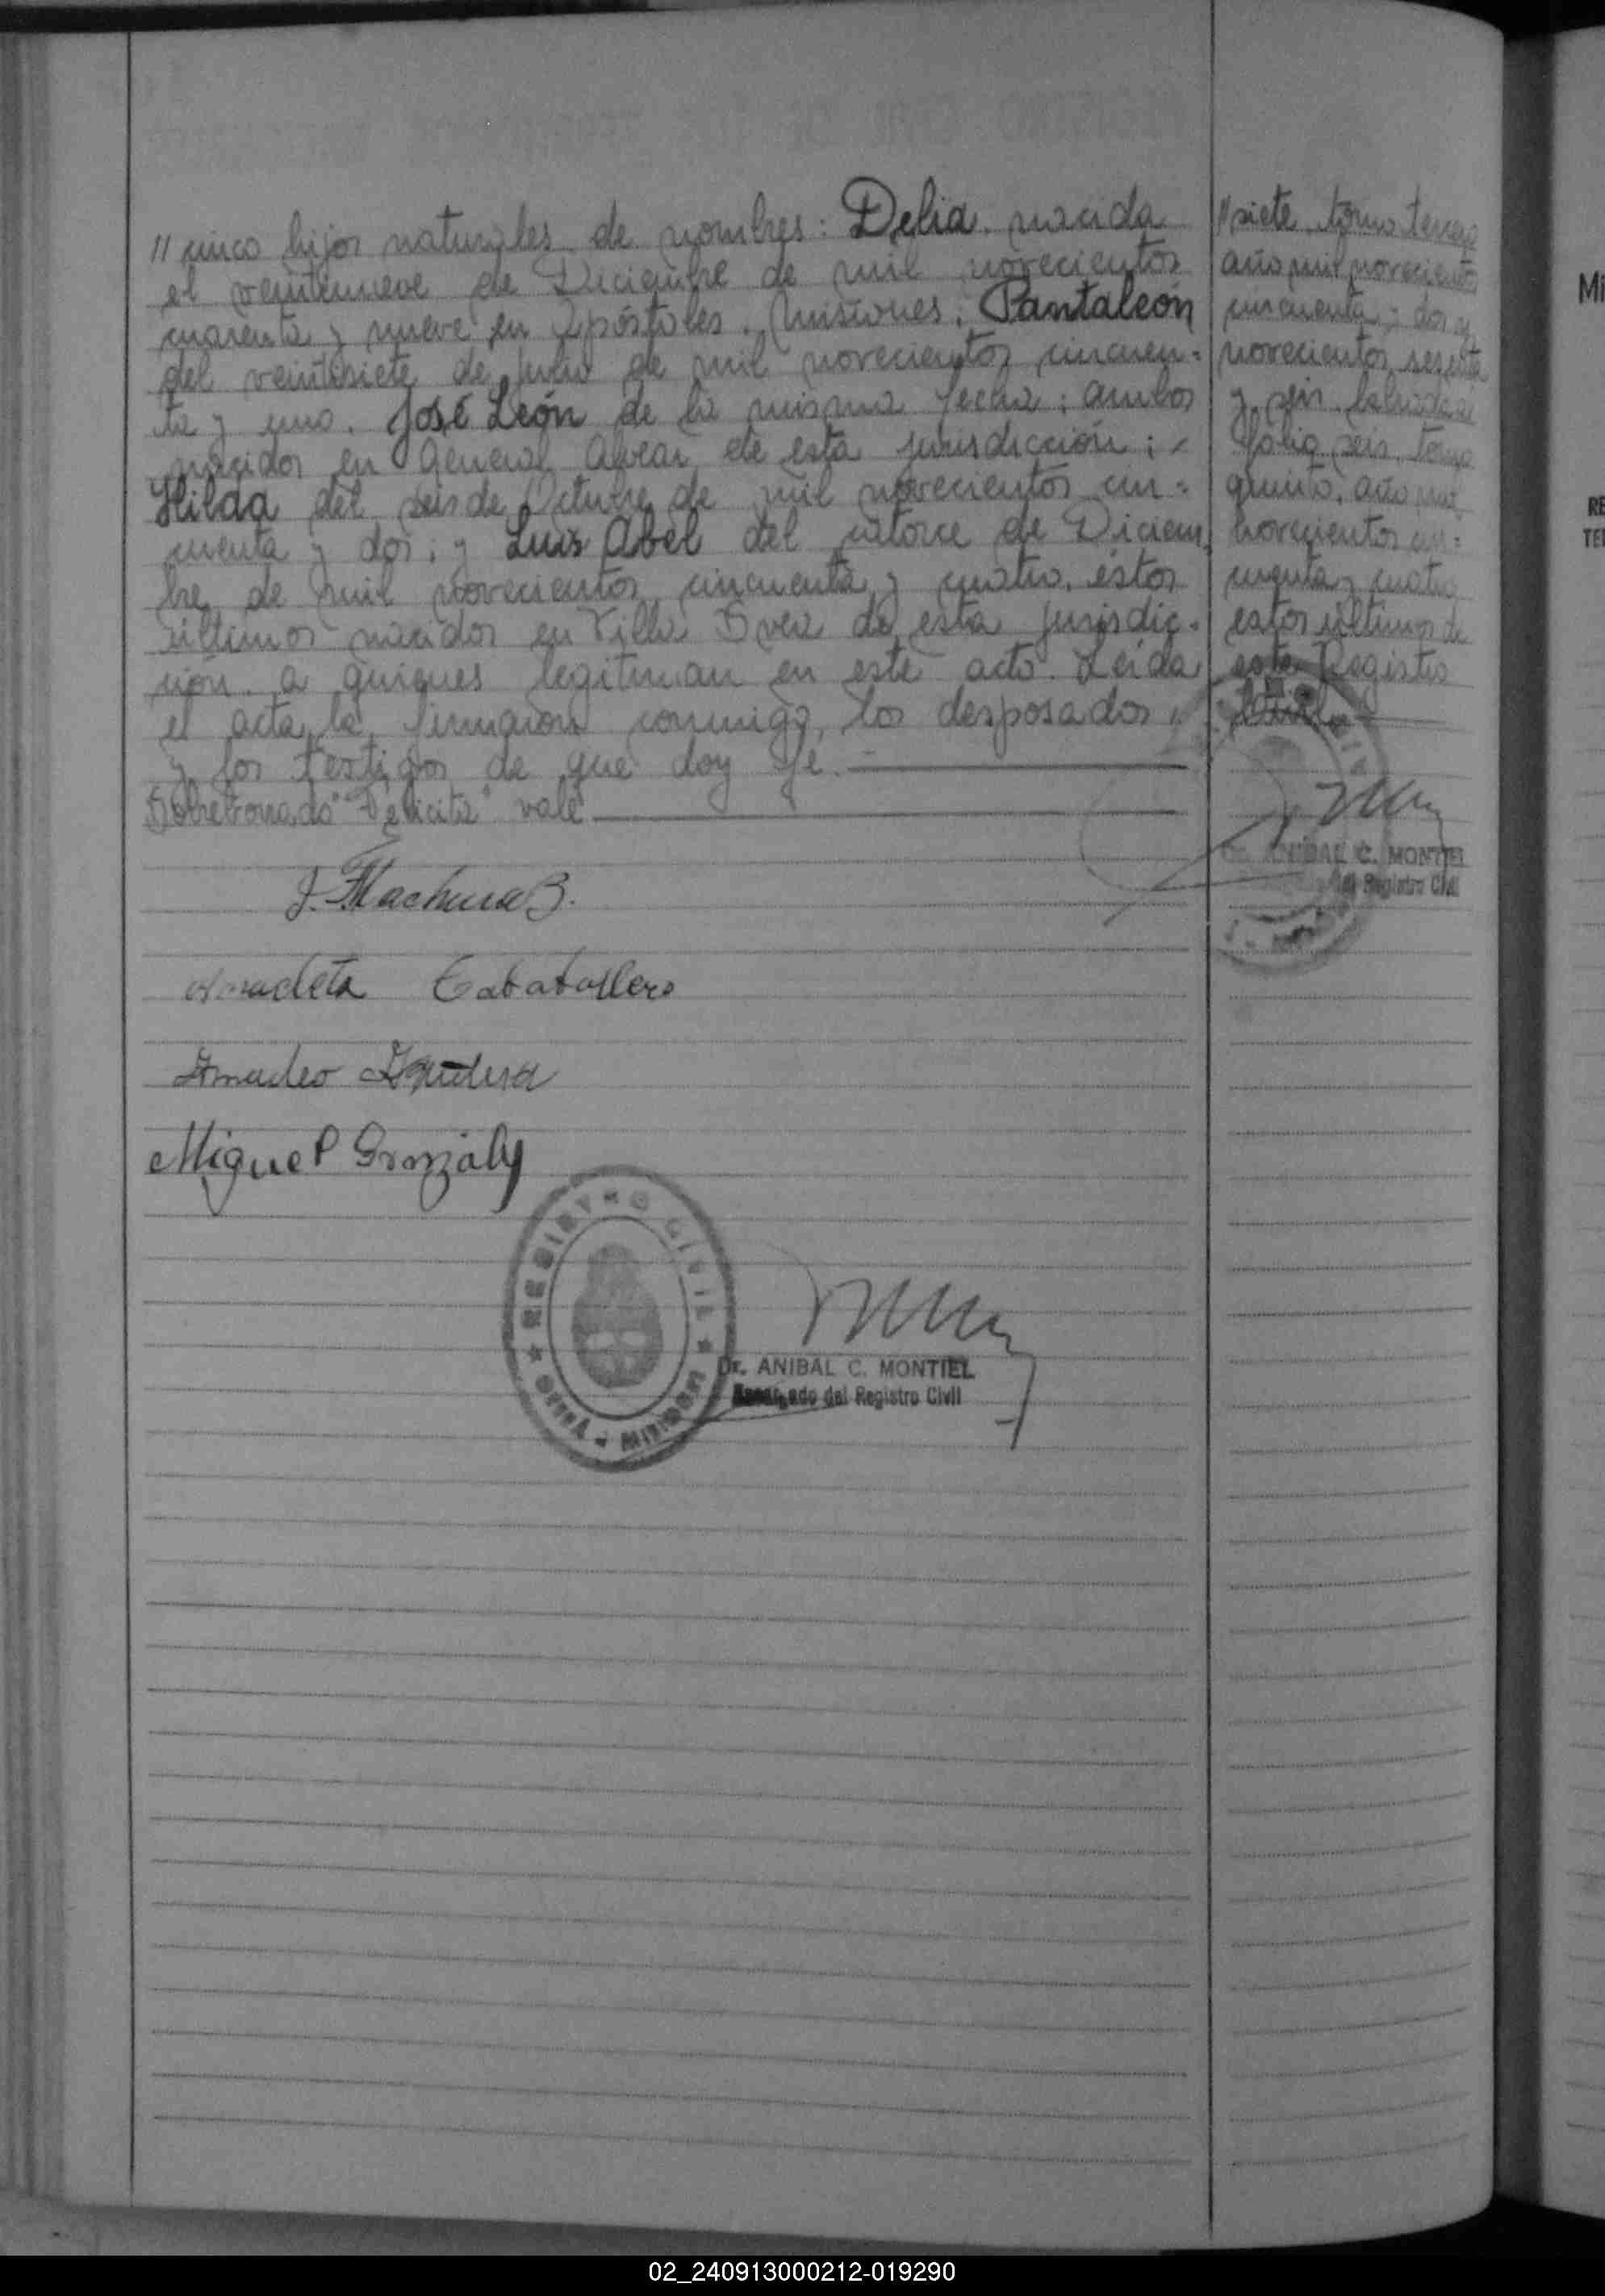 // cinco hijos naturales de nombres: Delia. nacida
el veintinueve de Diciembre de mil novecientos
cuarenta y nueve en Apóstoles. Misiones; Pantaleón
del veintisiete de Julio de mil novecientos cincuen=
ta y uno. José León de la misma fecha; ambos
nacidos en General Alvear de esta jurisdicción;
Hilda del seis de Octubre de mil novecientos cin=
cuenta y dos; y Luis Abel del catorce de Diciem
bre de mil novecientos cincuenta y cuatro. éstos
últimos nacidos en Villa Svea de esta jurisdic=
ción. a quienes legitiman en este acto. Leida
el acta la firmaron conmigo, los desposados
y los testigos de que doy fé.
Sobreborrado "Felicita" vale
J. Machura B.
Amadeo
Miguel González
REGISTRO CIVIL
MISIONES
Dr. ANIBAL C. MONTIEL
Encargado del Registro Civil
// siete tomo tercero
año mil novecientos
cincuenta y dos y
novecientos sesenta
y seis. labrada al
folio seis. tomo
quinto. año mil
novecientos cin=
cuenta y cuatro
estos últimos de
este Registro
Civil
Dr. ANIBAL C. MONTIEL
del Registro Civil
Mi
RE
TE
02_240913000212-019290